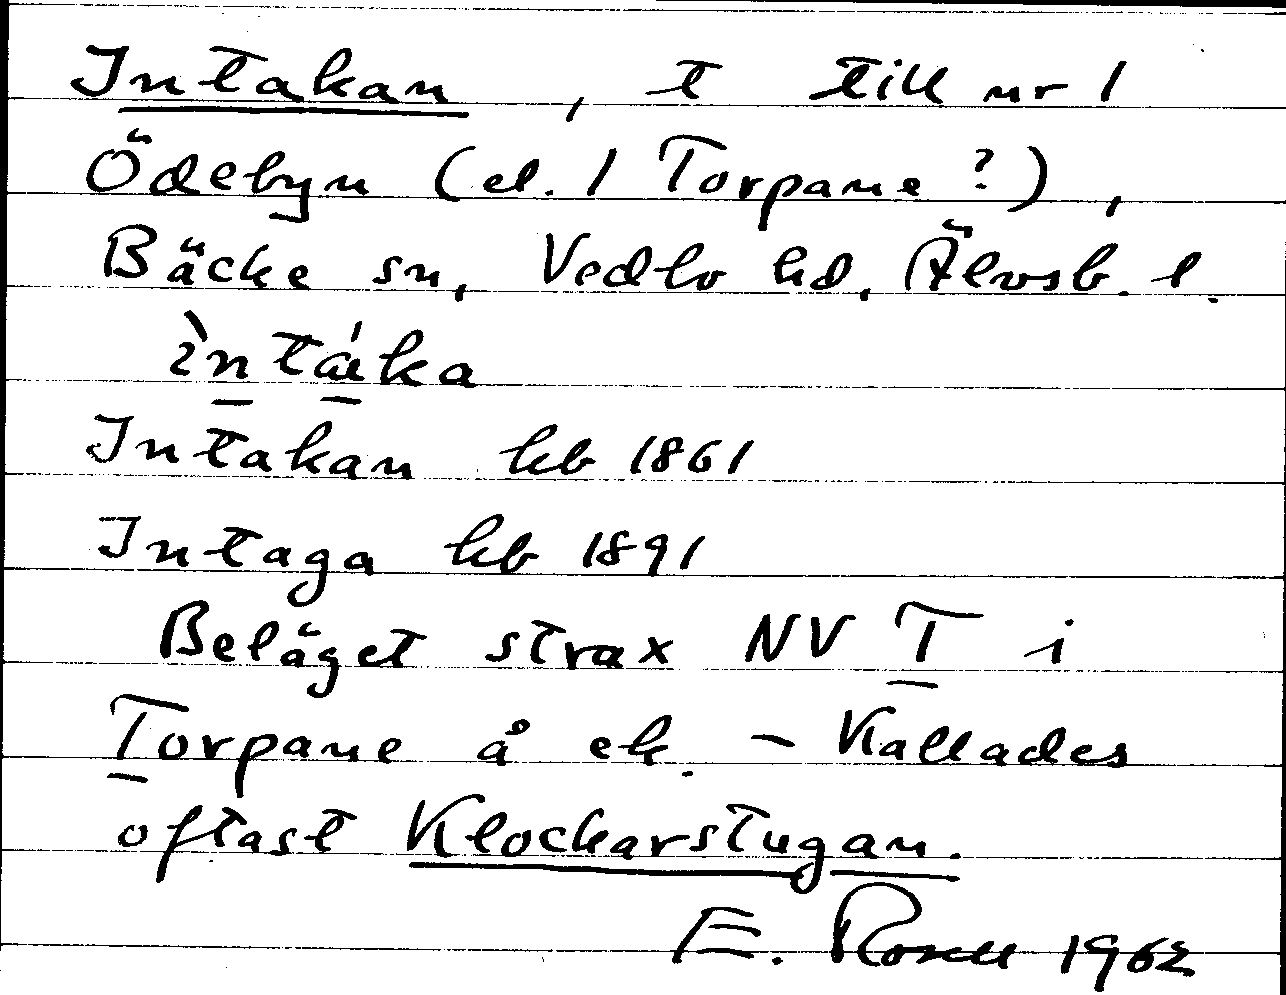 Intakan, t till nr 1
Ödebyn (el. 1 Torpane?),
Bäcke sn, Vedbo hd, Älvsb. l.
ìntáka
Intakan kb 1861
Intaga kb 1891
Beläget strax NV T i
Torpane å ek. - Kallades
oftast Klockarstugan.
E. Rosell 1962